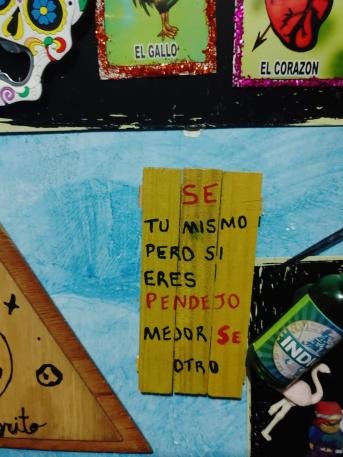 EL GALLO
EL CORAZON
SE
TU MISMO
PERO SI
ERES
PENDEJO
MEJOR SE
OTRO
INDI
rito